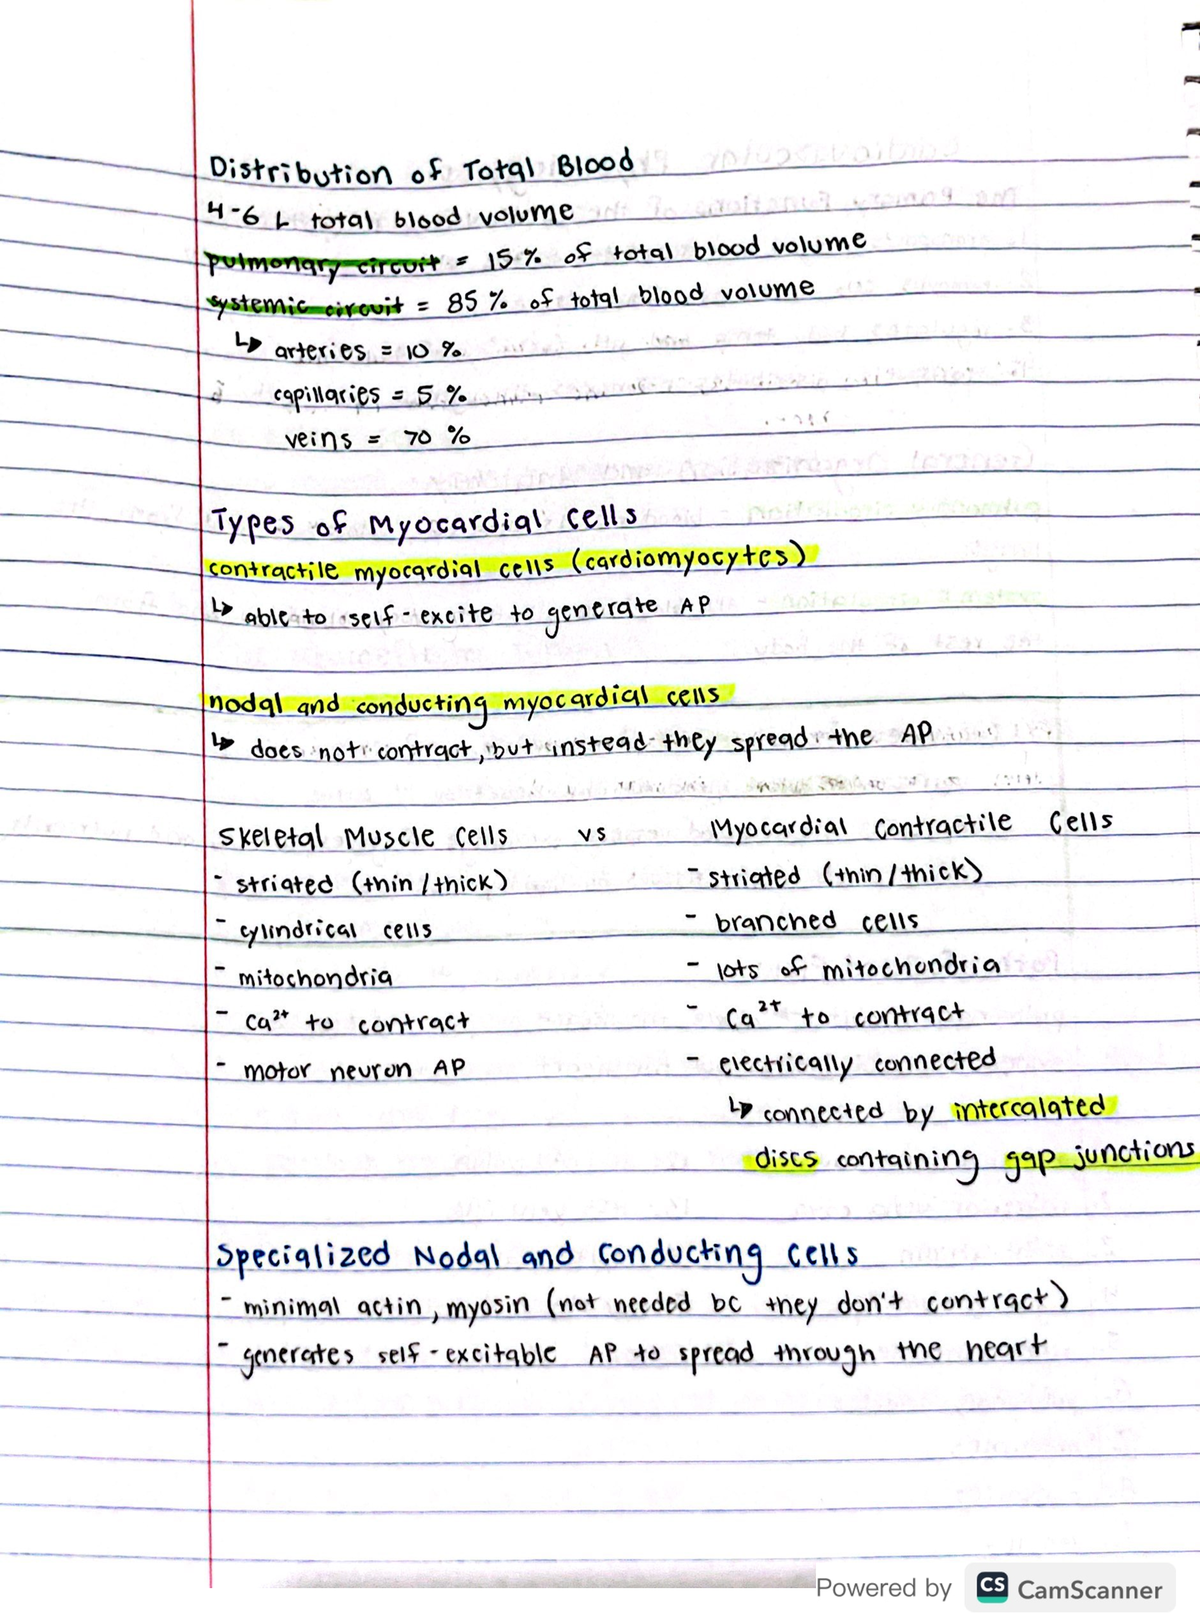 Distribution of Total Blood
4-6 L total blood volume
pulmonary circuit = 15% of total blood volume
systemic circuit = 85% of total blood volume
↳ arteries = 10 %
capillaries = 5 %
veins = 70 %
Types of Myocardial Cells
contractile myocardial cells (cardiomyocytes)
↳ able to self-excite to generate AP
nodal and conducting myocardial cells
↳ does not contract, but instead they spread the AP
Skeletal Muscle Cells vs Myocardial Contractile Cells
- striated (thin/thick) - striated (thin/thick)
- cylindrical cells - branched cells
- mitochondria - lots of mitochondria
- Ca²⁺ to contract - Ca²⁺ to contract
- motor neuron AP - electrically connected
↳ connected by intercalated
discs containing gap junctions
Specialized Nodal and Conducting Cells
- minimal actin, myosin (not needed bc they don't contract)
- generates self-excitable AP to spread through the heart
Powered by CS CamScanner